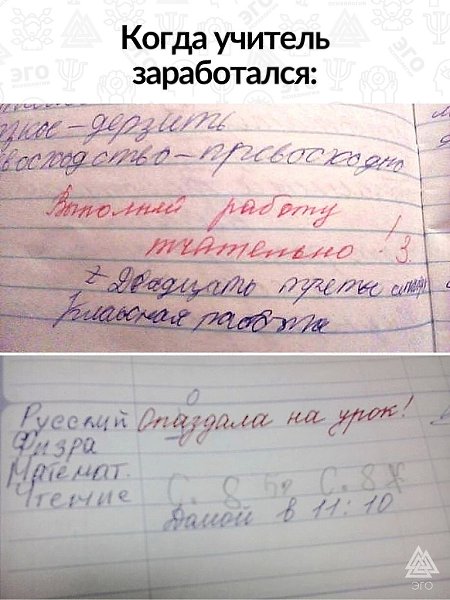 Когда учитель
заработался:
дерзить
восходство – превосходно
Выполняй работу
тчательно! 3.
Двадцать третье
Классная работа
о
Русский Опаздала на урок!
Физра
Математ.
Чтение С. 8 С. 8
Домой в 11:10
ЭГО